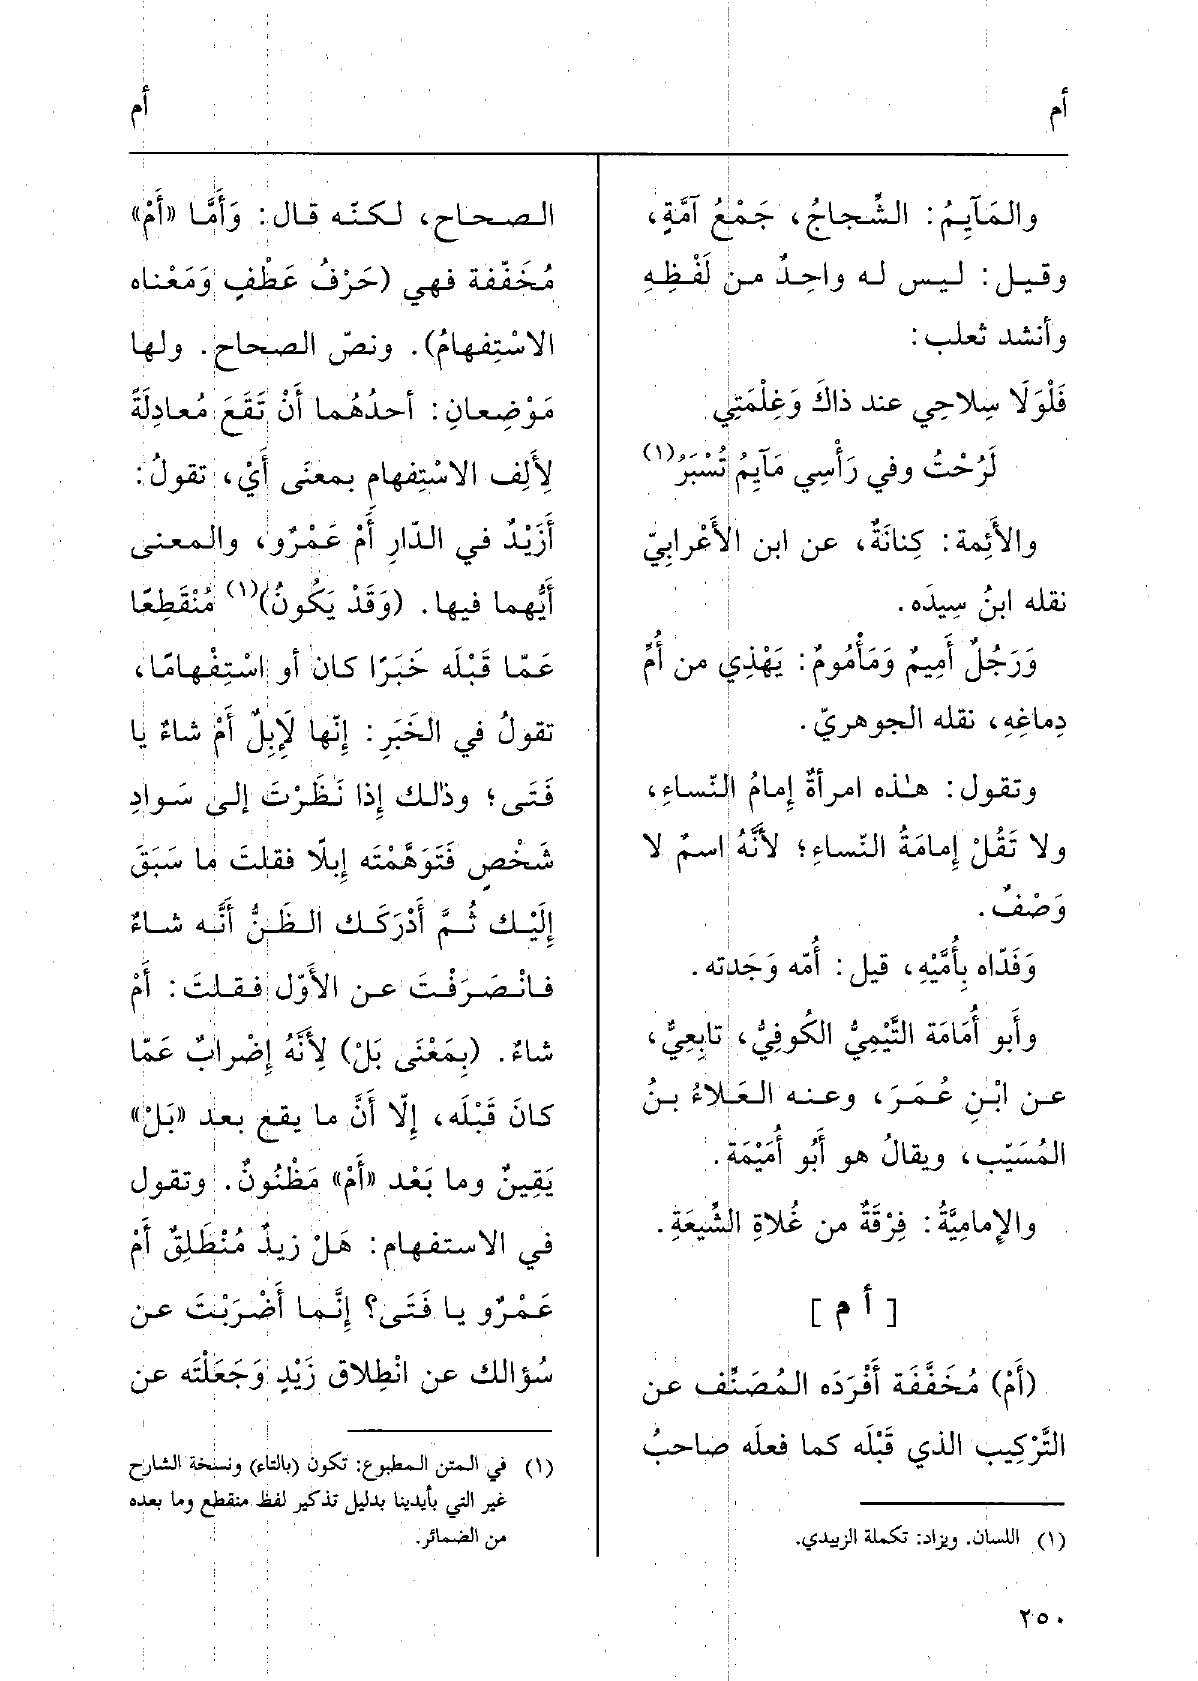 أم
أم
والمَآيِمُ: الشِّجاجُ، جَمْعُ آمَّةٍ،
وقيل: ليس له واحِدٌ من لَفْظِهِ
وأنشد ثعلب:
فَلَوْلَا سِلاحِي عند ذاكَ وَغِلْمَتِي
لَرُحْتُ وفي رَأْسِي مَآيِمُ تُسْبَرُ(١)
والأَئِمة: كِنانَةُ، عن ابن الأَعْرابِيّ
نقله ابنُ سِيدَه.
وَرَجُلٌ أَمِيمٌ وَمَأْمُومٌ: يَهْذِي من أُمِّ
دِماغِهِ، نقله الجوهريّ.
وتقول: هٰذه امرأةٌ إِمامُ النّساءِ،
ولا تَقُلْ إِمامَةُ النّساءِ؛ لأَنَّهُ اسمٌ لا
وَصْفٌ.
وَفَدّاه بِأُمَّيْهِ، قيل: أُمّه وَجَدته.
وأَبو أُمَامَة التَّيْمِيُّ الكُوفِيُّ، تابِعِيٌّ،
عن ابْنِ عُمَرَ، وعنه العَلاءُ بنُ
المُسَيّب، ويقالُ هو أَبُو أُمَيْمَة.
والإِمامِيَّةُ: فِرْقَةٌ من غُلاةِ الشِّيعَةِ.
[ أ م ]
(أَمْ) مُخَفَّفَة أَفْرَدَه المُصَنِّف عن
التَّرْكِيب الذي قَبْلَه كما فعلَه صاحبُ
(١) اللسان. ويزاد: تكملة الزبيدي.
الصحاح، لكنّه قال: وَأَمَّا «أَمْ»
مُخَفّفة فهي (حَرْفُ عَطْفٍ وَمَعْناه
الاسْتِفهامُ). ونصّ الصحاح. ولها
مَوْضِعانِ: أحدُهُما أَنْ تَقَعَ مُعادِلَةً
لِأَلِف الاسْتِفهام بمعنَى أَيْ، تقولُ:
أَزَيْدٌ في الدّارِ أَمْ عَمْرٌو، والمعنى
أَيُّهما فيها. (وَقَدْ يَكُونُ)(١) مُنْقَطِعًا
عَمّا قَبْلَه خَبَرًا كان أو اسْتِفْهامًا،
تقولُ في الخَبَرِ: إِنّها لَإِبِلٌ أَمْ شاءٌ يا
فَتَى؛ وذٰلك إِذا نَظَرْتَ إلى سَوادِ
شَخْصٍ فَتَوَهَّمْته إِبلًا فقلتَ ما سَبَقَ
إِلَيْك ثُمَّ أَدْرَكَك الظَّنُّ أَنَّه شاءٌ
فانْصَرَفْتَ عن الأَوّل فقلتَ: أَمْ
شاءٌ. (بِمَعْنَى بَلْ) لِأَنَّهُ إِضْرابٌ عَمّا
كانَ قَبْلَه، إِلّا أَنَّ ما يقع بعد «بَلْ»
يَقِينٌ وما بَعْد «أَمْ» مَظْنُونٌ. وتقول
في الاستفهام: هَلْ زيدٌ مُنْطَلِقٌ أَمْ
عَمْرٌو يا فَتَى؟ إِنَّما أَضْرَبْتَ عن
سُؤالك عن انْطِلاق زَيْدٍ وَجَعَلْتَه عن
(١) في المتن المطبوع: تكون (بالتاء) ونسخة الشارح
غير التي بأيدينا بدليل تذكير لفظ منقطع وما بعده
من الضمائر.
٢٥٠